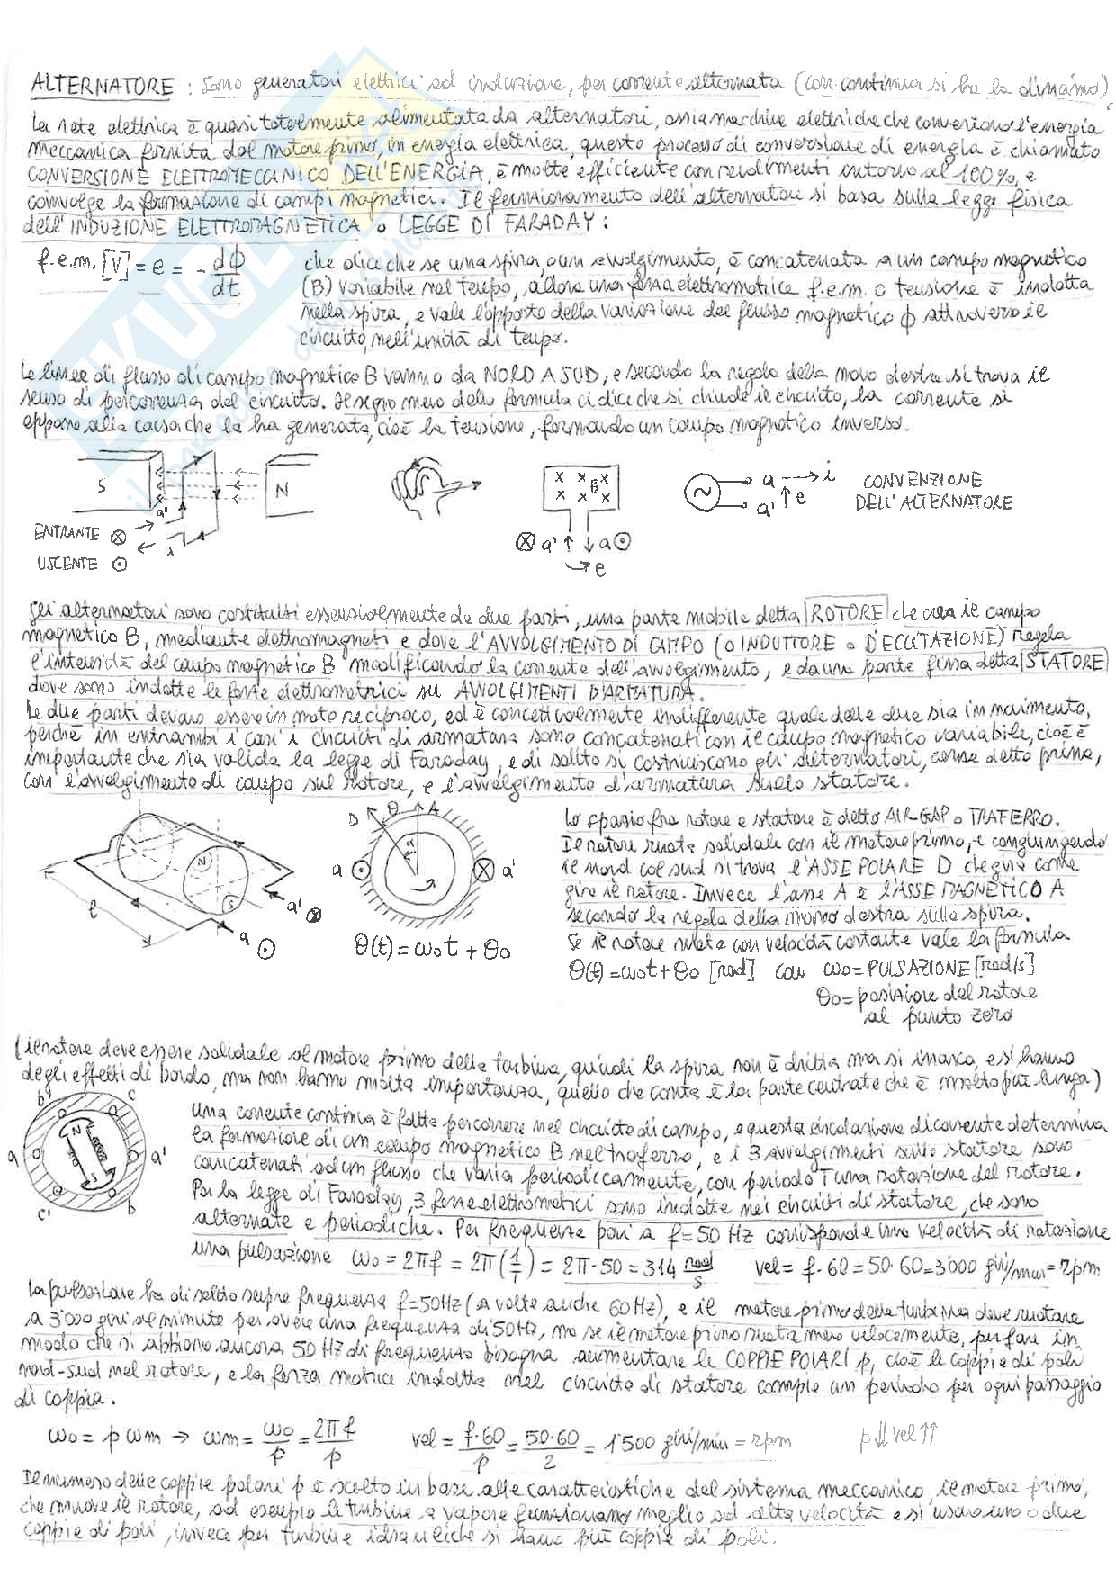 ALTERNATORE : Sono generatori elettrici ad induzione, per corrente alternata (corr. continua si ha la dinamo)
La rete elettrica è quasi totalmente alimentata da alternatori, ossia macchine elettriche che convertono l'energia
meccanica fornita dal motore primo, in energia elettrica, questo processo di conversione di energia è chiamato
CONVERSIONE ELETTROMECCANICO DELL'ENERGIA, è molto efficiente con rendimenti intorno al 100%, e
coinvolge la formazione di campi magnetici. Il funzionamento dell'alternatore si basa sulla legge fisica
dell'INDUZIONE ELETTROMAGNETICA o LEGGE DI FARADAY :
f.e.m. [V] = e = - dϕ/dt
che dice che se una spira, o un avvolgimento, è concatenata a un campo magnetico
(B) variabile nel tempo, allora una forza elettromotrice f.e.m. o tensione è indotta
nella spira, e vale l'opposto della variazione del flusso magnetico ϕ attraverso il
circuito, nell'unità di tempo.
Le linee di flusso di campo magnetico B vanno da NORD A SUD, e secondo la regola della mano destra si trova il
senso di percorrenza del circuito. Il segno meno della formula ci dice che si chiude il circuito, la corrente si
oppone alla causa che la ha generata, cioè la tensione, formando un campo magnetico inverso.
S
N
a'
ENTRANTE ⊗
USCENTE ⊙
x x x
x B x
⊗ a' ↑ ↓ a ⊙
→ e
~
a → i
a' ↑ e
CONVENZIONE
DELL'ALTERNATORE
Gli alternatori sono costituiti essenzialmente da due parti, una parte mobile detta ROTORE che crea il campo
magnetico B, mediante elettromagneti e dove l'AVVOLGIMENTO DI CAMPO (o INDUTTORE o D'ECCITAZIONE) regola
l'intensità del campo magnetico B modificando la corrente dell'avvolgimento, e da una parte fissa detta STATORE
dove sono indotte le forze elettromotrici su AVVOLGIMENTI D'ARMATURA.
Le due parti devono essere in moto reciproco, ed è concettualmente indifferente quale delle due sia in movimento,
perchè in entrambi i casi i circuiti di armatura sono concatenati con il campo magnetico variabile, cioè è
importante che sia valida la legge di Faraday, e di solito si costruiscono gli alternatori, come detto prima,
con l'avvolgimento di campo sul rotore, e l'avvolgimento d'armatura sullo statore.
N
S
l
a' ⊗
a ⊙
D θ A
a ⊙
⊗ a'
θ(t) = ω₀t + θ₀
Lo spazio fra rotore e statore è detto AIR-GAP o TRAFERRO.
Il rotore ruota solidale con il motore primo, e congiungendo
il nord col sud si trova l'ASSE POLARE D che gira come
gira il rotore. Invece l'asse A è l'ASSE MAGNETICO A
secondo la regola della mano destra sulla spira.
Se il rotore ruota con velocità costante vale la formula
θ(t) = ω₀t + θ₀ [rad] con ω₀ = PULSAZIONE [rad/s]
θ₀ = posizione del rotore
al punto zero
(il rotore deve essere solidale al motore primo della turbina, quindi la spira non è dritta ma si inarca, e si hanno
degli effetti di bordo, ma non hanno molta importanza, quello che conta è la parte centrale che è molto più lunga)
b' c
a a'
N
c' b
Una corrente continua è fatta percorrere nel circuito di campo, e questa circolazione di corrente determina
la formazione di un campo magnetico B nel traferro, e i 3 avvolgimenti sullo statore sono
concatenati ad un flusso che varia periodicamente, con periodo T una rotazione del rotore.
Per la legge di Faraday, 3 forze elettromotrici sono indotte nei circuiti di statore, che sono
alternate e periodiche. Per frequenze pari a f=50 Hz corrisponde una velocità di rotazione
una pulsazione ω₀ = 2πf = 2π(1/T) = 2π·50 = 314 rad/s vel = f·60 = 50·60 = 3'000 giri/min = rpm
La pulsazione ha di solito sempre frequenza f=50Hz (a volte anche 60Hz), e il motore primo della turbina deve ruotare
a 3'000 giri al minuto per avere una frequenza di 50Hz, ma se il motore primo ruota meno velocemente, per fare in
modo che si abbiano ancora 50 Hz di frequenza bisogna aumentare le COPPIE POLARI p, cioè le coppie di poli
nord-sud nel rotore, e la forza motrice indotta nel circuito di statore compie un periodo per ogni passaggio
di coppia.
ω₀ = p ωm → ωm = ω₀/p = 2πf/p vel = f·60/p = 50·60/2 = 1'500 giri/min = rpm p↓↓ vel↑↑
Il numero delle coppie polari p è scelto in base alle caratteristiche del sistema meccanico, il motore primo,
che muove il rotore, ad esempio le turbine a vapore funzionano meglio ad alta velocità e si usano uno o due
coppie di poli, invece per turbine idrauliche si hanno più coppie di poli.